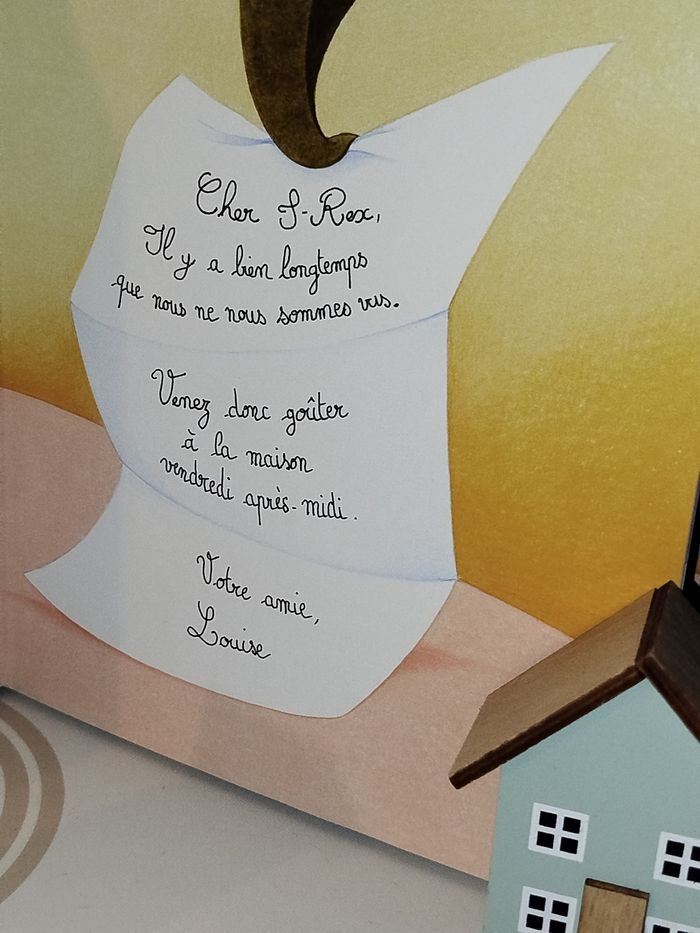 Cher T-Rex,
Il y a bien longtemps
que nous ne nous sommes vus.
Venez donc goûter
à la maison
vendredi après-midi.
Votre amie,
Louise